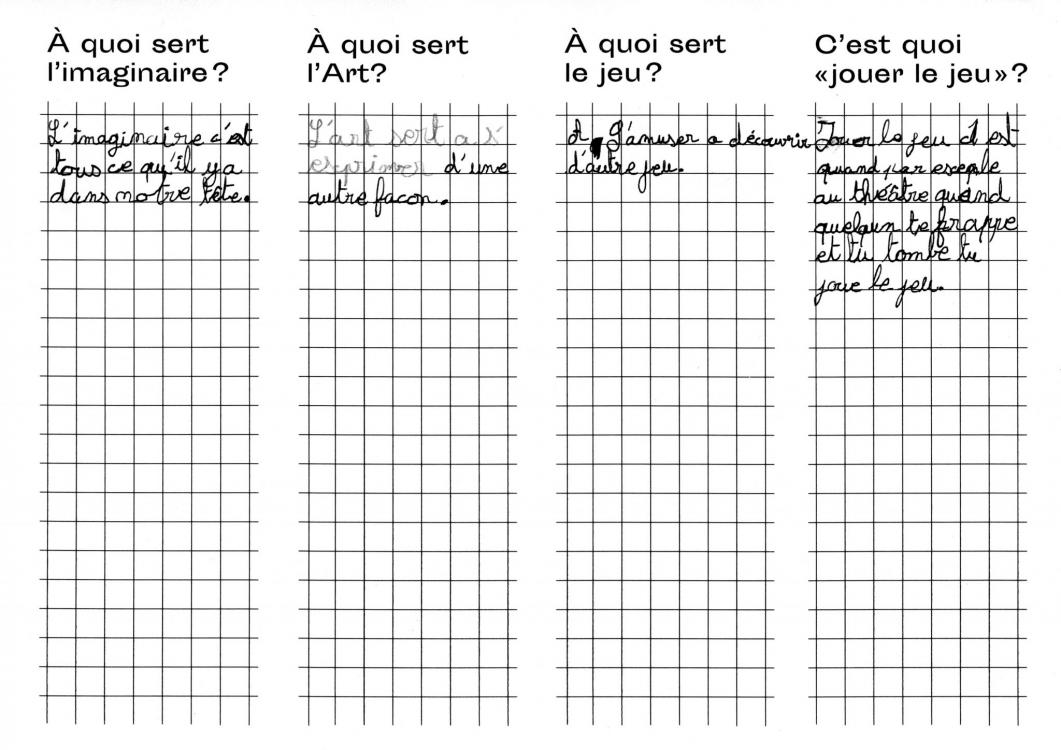 À quoi sert
l'imaginaire ?
L'imaginaire c'est
tous ce qu'il y a
dans notre tête.
À quoi sert
l'Art?
L'art sert a s'
esprimer d'une
autre facon.
À quoi sert
le jeu ?
A S'amuser a découvrir
d'autre jeu.
C'est quoi
«jouer le jeu» ?
Jouer le jeu c'est
quand par exemple
au théâtre quand
quelqun te frappe
et tu tombe tu
joue le jeu.